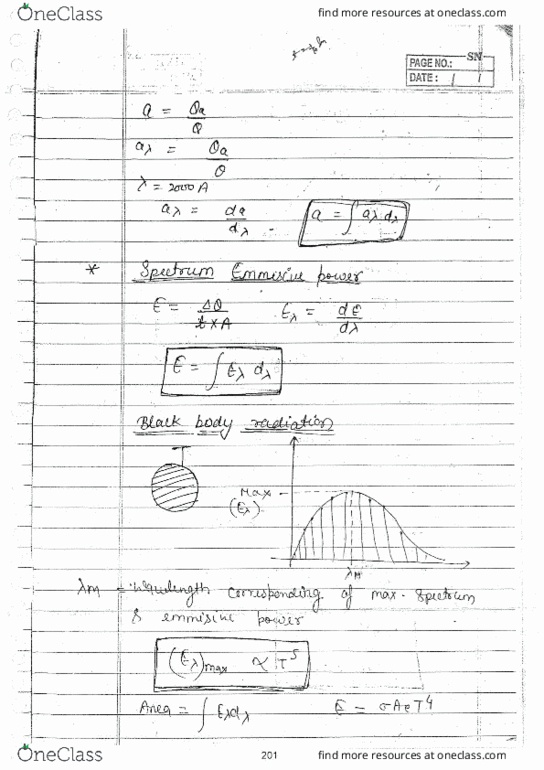 OneClass find more resources at oneclass.com
SN
PAGE NO.:
DATE: / /
a = Qa/Q
aλ = Qa/Q
λ = 2000 A
aλ = da/dλ . a = ∫ aλ dλ
* Spectrum Emmisive power
E = ΔQ/(t×A) Eλ = dE/dλ
E = ∫ Eλ dλ
Black body radiation
Max
(Eλ)
λM
λM = Wavelength corresponding of max. spectrum
& emmisive power
(Eλ)max ∝ T⁵
Area = ∫ Eλdλ E = σAeT⁴
OneClass 201 find more resources at oneclass.com